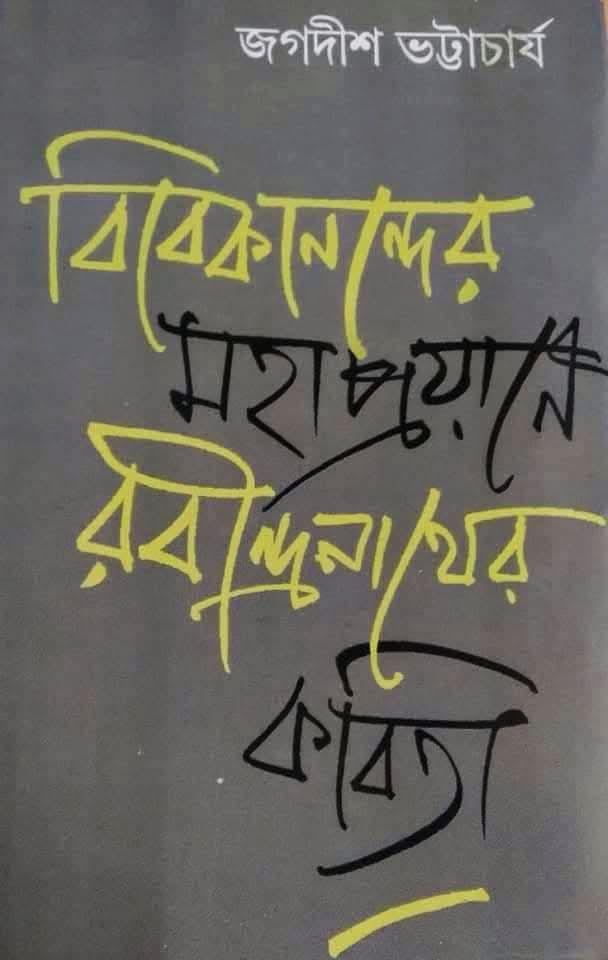 জগদীশ ভট্টাচার্য
বিবেকানন্দের
মহাপ্রয়াণে
রবীন্দ্রনাথের
কবিতা